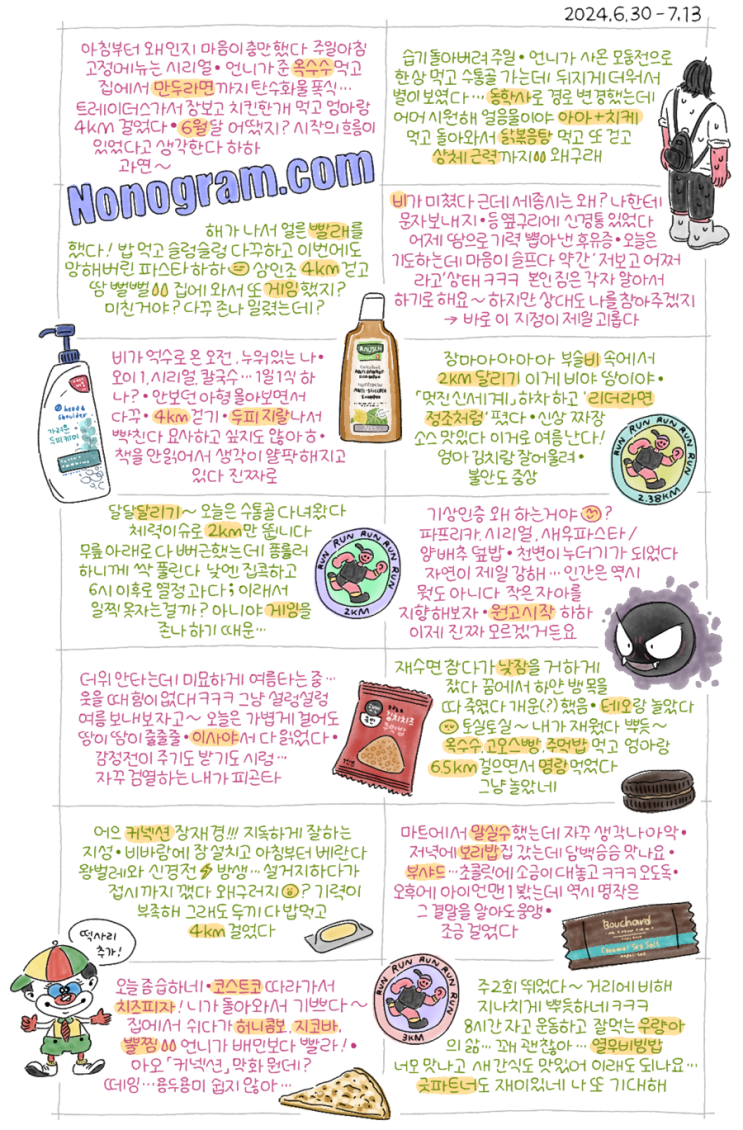 2024.6.30 - 7.13
아침부터 왜인지 마음이 충만했다 주일아침
고정메뉴는 시리얼 • 언니가 준 옥수수 먹고
집에서 만두라면까지 탄수화물 폭식…
트레이더스가서 장보고 치킨한개 먹고 엄마랑
4km 걸었다 • 6월달 어땠지? 시작의 흐름이
있었다고 생각한다 하하
과연~
습기 돌아버려 주월 • 언니가 사온 모둠전으로
한상 먹고 수통골 가는데 뒤지게 더워서
별이 보였다… 동학사로 경로 변경했는데
어머 시원해 얼음물이야 아아+치케
먹고 돌아와서 닭볶음탕 먹고 또 걷고
상체 근력까지 왜구래
Nonogram.com
해가 나서 얼른 빨래를
했다! 밥 먹고 슬렁슬렁 다꾸하고 이번에도
망해버린 파스타 하하 상인조 4km 걷고
땀 뻘뻘 집에 와서 또 게임했지?
미친거야? 다꾸 존나 밀렸는데?
비가 미쳤다 근데 세종시는 왜? 나한테
문자보내지 • 등 옆구리에 신경통 있었다
어제 땀으로 기력 뺄아낸 후유증 • 오늘은
기도하는데 마음이 슬프다 약간 '저보고 어쩌
라고' 상태 ㅋㅋㅋ 본인 짐은 각자 알아서
하기로 해요~ 하지만 상대도 나를 참아주겠지
→ 바로 이 지점이 제일 괴롭다
비가 억수로 온 오전. 누워있는 나 •
오이 1, 시리얼, 칼국수… 1일 1식 하
나? • 안보던 아형 몰아보면서
다꾸 • 4km 걷기 • 두피 지랄나서
빡친다 묘사하고 싶지도 않아 ㅎ •
책을 안읽어서 생각이 얄팍해지고
있다 진짜로
head & shoulders
가려운
두피케어
RAUSCH
장마아아아아 부슬비 속에서
2km 달리기 이게 비야 땀이야 •
「멋진 신세계」 하차하고 '리더라면
정조처럼' 폈다 • 신상 짜장
소스 맛있다 이거로 여름 난다!
엄마 김치랑 잘어울려 •
불안도 증상
RUN RUN RUN RUN RUN
2.38KM
달달 달리기~ 오늘은 수통골 다녀왔다
체력이슈로 2km만 뜁니다
무릎 아래로 다 뻐근했는데 폼롤러
하니께 싹 풀린다 낮엔 집콕하고
6시 이후로 열정 과다; 이래서
일찍 못자는걸까? 아니야 게임을
존나 하기 때문…
RUN RUN RUN RUN RUN
2KM
기상인증 왜 하는거야?
파프리카, 시리얼, 새우파스타/
양배추 덮밥 • 천변이 누더기가 되었다
자연이 제일 강해… 인간은 역시
뭣도 아니다 작은 자아를
지향해보자 • 원고시작 하하
이제 진짜 모르겠거든요
더위 안타는데 미묘하게 여름타는 중…
옷을 때려함이 없대 ㅋㅋㅋ 그냥 설렁설렁
여름 보내보자고~ 오늘은 가볍게 걸어도
땀이 땀이 줄줄줄 • 이사야서 다 읽었다 •
감정전이 주기도 받기도 시렁…
자꾸 검열하는 내가 피곤타
김치치즈
주먹밥
재수면 참다가 낮잠을 거하게
잤다 꿈에서 하얀 뱀 목을
따 죽였다 개운(?)했음 • 테오랑 놀았다
토실토실~ 내가 재웠다 뿌듯~
옥수수, 고오스빵, 주먹밥 먹고 엄마랑
6.5km 걸으면서 명랑 먹었다
그냥 놀았네
어으 커넥션 장재경!!! 지독하게 잘하는
지성 • 비바람에 잠 설치고 아침부터 베란다
왕벌레와 신경전 발생… 설거지하다가
접시까지 깼다 왜구러지? 기력이
부족해 그래도 두끼 다 밥먹고
4km 걸었다
마트에서 말실수했는데 자꾸 생각나 아악 •
저녁에 보리밥집 갔는데 담백슴슴 맛나요 •
부샤드… 초콜릿에 소금이 대놓고 ㅋㅋㅋ 오도독 •
오후에 아이언맨1 봤는데 역시 명작은
그 결말을 알아도 웅앵 •
조금 걸었다
Bouchard
Caramel Sea Salt
떡사리
추가!
오늘 종습하네 • 코스트코 따라가서
치즈피자! 니가 돌아와서 기쁘다~
집에서 쉬다가 허니콤보, 지코바,
뿔찜 언니가 배민보다 빨라! •
아오 「커넥션」 막화 뭔데?
떼잉… 용두용미 쉽지 않아…
RUN RUN RUN RUN RUN
3KM
주2회 뛰었다~ 거리에 비해
지나치게 뿌듯하네 ㅋㅋㅋㅋ
8시간 자고 운동하고 잘먹는 우량아
의 삶… 꽤 괜찮아… 열무비빔밥
너모 맛나고 새 간식도 맛있어 이래도 되나요…
굿파트너도 재미있네 나 또 기대해